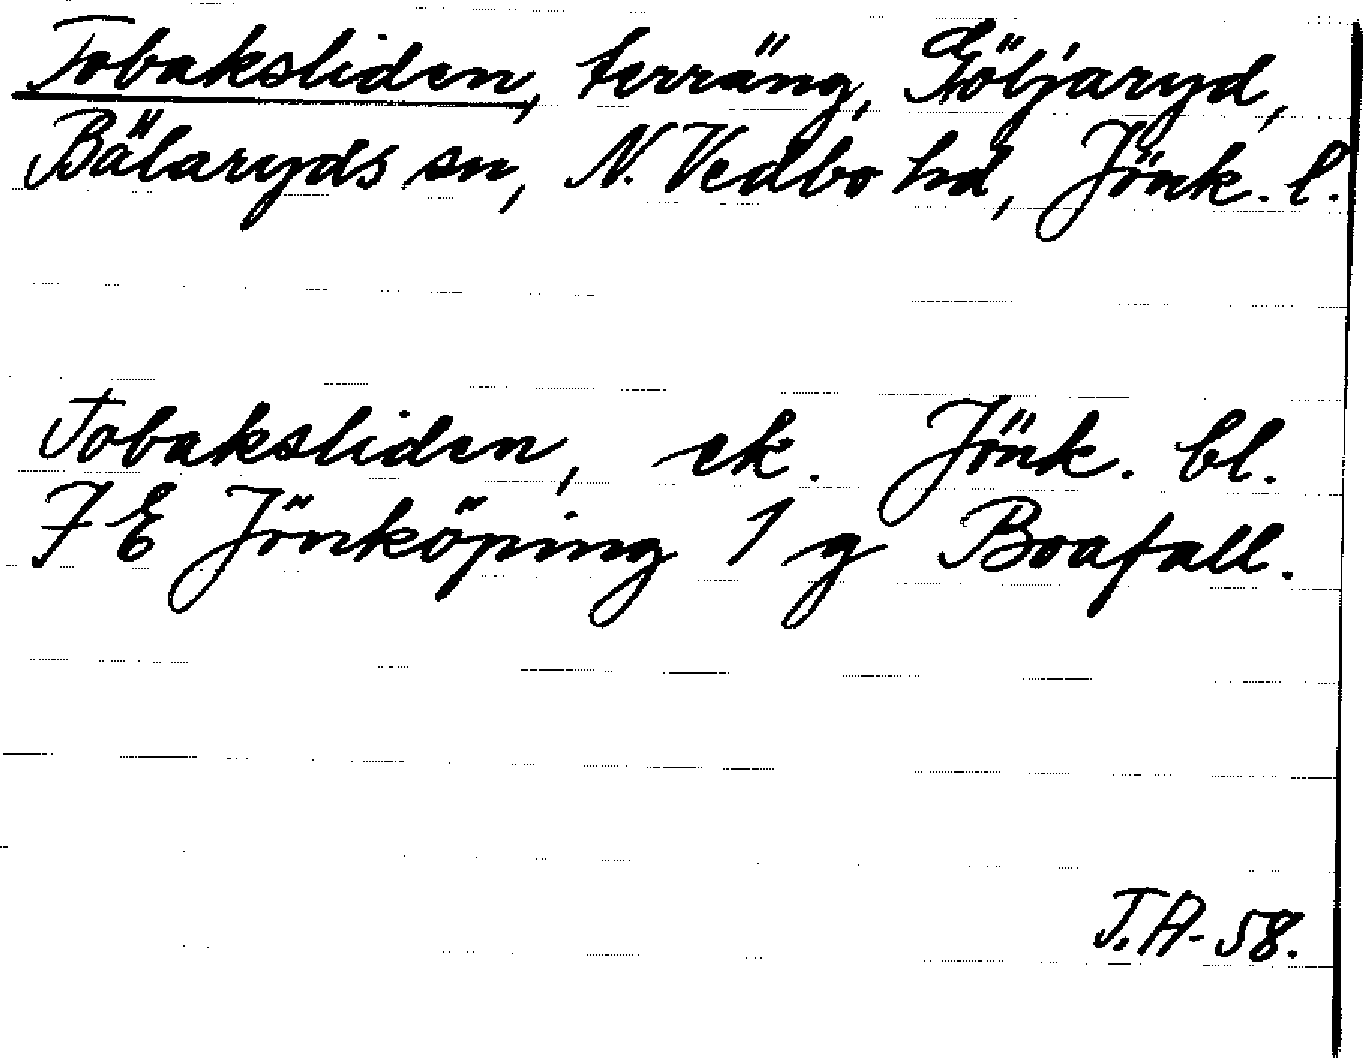 Tobaksliden, terräng, Göljaryd,
Bälaryds sn, N. Vedbo hd, Jönk. l.
Tobaksliden, ek. Jönk. bl.
7 E Jönköping 1 g Boafall.
T.A-58.